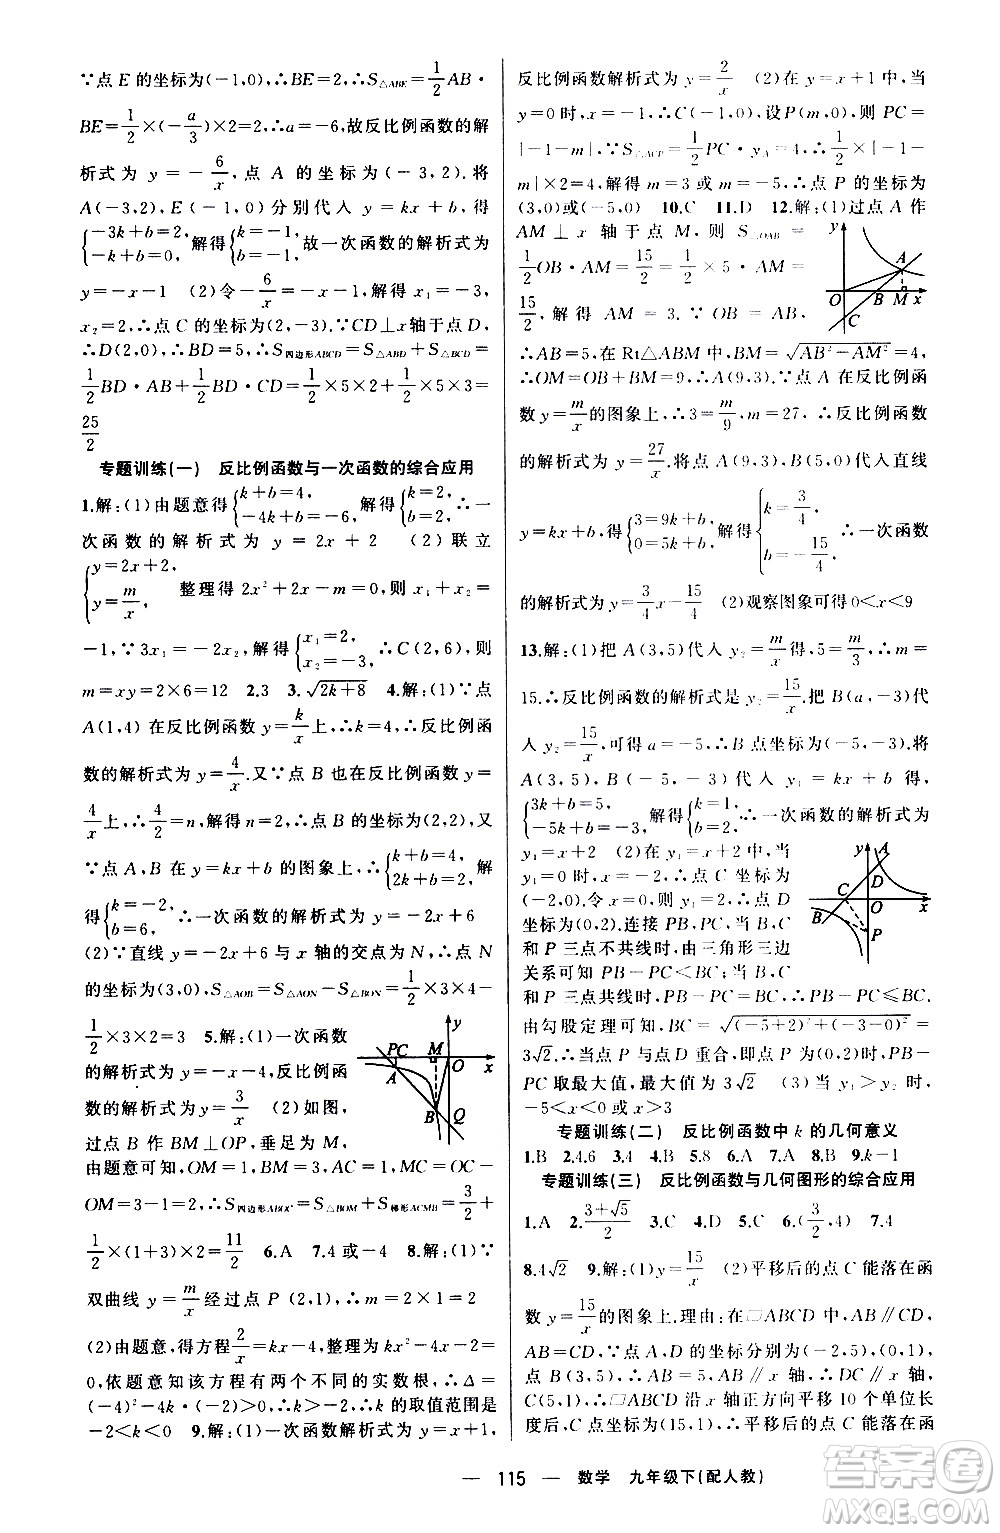 ∵点 E 的坐标为(-1,0),∴BE=2,∴S△ABE=1/2AB·
BE=1/2×(-a/3)×2=2,∴a=-6,故反比例函数的解
析式为 y=-6/x,点 A 的坐标为(-3,2).将
A(-3,2),E(-1,0)分别代入 y=kx+b,得
{-3k+b=2,-k+b=0,解得{k=-1,b=-1,故一次函数的解析式为
y=-x-1 (2)令-6/x=-x-1,解得 x₁=-3,
x₂=2,∴点 C 的坐标为(2,-3).∵CD⊥x轴于点 D,
∴D(2,0),∴BD=5,∴S四边形ABCD=S△ABD+S△BCD=
1/2BD·AB+1/2BD·CD=1/2×5×2+1/2×5×3=
25/2
专题训练(一) 反比例函数与一次函数的综合应用
1.解:(1)由题意得{k+b=4,-4k+b=-6,解得{k=2,b=2,∴一
次函数的解析式为 y=2x+2 (2)联立
{y=2x+2,y=m/x,整理得 2x²+2x-m=0,则 x₁+x₂=
-1,∵3x₁=-2x₂,解得{x₁=2,x₂=-3,∴C(2,6),则
m=xy=2×6=12 2.3 3.√(2k+8) 4.解:(1)∵点
A(1,4)在反比例函数 y=k/x上,∴k=4,∴反比例函
数的解析式为 y=4/x.又∵点 B 也在反比例函数 y=
4/x上,∴4/2=n,解得 n=2,∴点 B 的坐标为(2,2),又
∵点 A,B 在 y=kx+b 的图象上,∴{k+b=4,2k+b=2,解
得{k=-2,b=6,∴一次函数的解析式为 y=-2x+6
(2)∵直线 y=-2x+6 与 x 轴的交点为 N,∴点 N
的坐标为(3,0),S△AOB=S△AON-S△BON=1/2×3×4-
1/2×3×2=3 5.解:(1)一次函数
的解析式为 y=-x-4,反比例函
数的解析式为 y=3/x (2)如图,
过点 B 作 BM⊥OP,垂足为 M,
由题意可知,OM=1,BM=3,AC=1,MC=OC-
OM=3-1=2,∴S四边形ABOC=S△BOM+S梯形ACMB=3/2+
1/2×(1+3)×2=11/2 6.A 7.4或-4 8.解:(1)∵
双曲线 y=m/x经过点 P(2,1),∴m=2×1=2
(2)由题意,得方程2/x=kx-4,整理为 kx²-4x-2=
0,依题意知该方程有两个不同的实数根,∴Δ=
(-4)²-4k·(-2)>0,∴k>-2,∴k 的取值范围是
-2<k<0 9.解:(1)一次函数解析式为 y=x+1,
y
PC
M
O
x
A
B
Q
反比例函数解析式为 y=2/x (2)在 y=x+1 中,当
y=0时,x=-1,∴C(-1,0),设P(m,0),则 PC=
|-1-m|,∵S△ACP=1/2PC·yA=4,∴1/2×|-1-
m|×2=4,解得 m=3 或 m=-5,∴点 P 的坐标为
(3,0)或(-5,0) 10.C 11.D 12.解:(1)过点 A 作
AM⊥x 轴于点 M,则 S△OAB=
1/2OB·AM=15/2=1/2×5·AM=
15/2,解得 AM=3.∵OB=AB,
∴AB=5,在 Rt△ABM中,BM=√(AB²-AM²)=4,
∴OM=OB+BM=9,∴A(9,3).∵点 A 在反比例函
数 y=m/x的图象上,∴3=m/9,∴m=27,∴反比例函数
的解析式为 y=27/x.将点 A(9,3),B(5,0)代入直线
y=kx+b,得{3=9k+b,0=5k+b,解得{k=3/4,b=-15/4,∴一次函数
的解析式为 y=3/4x-15/4 (2)观察图象可得0<x<9
y
A
O
B
M
x
C
13.解:(1)把 A(3,5)代入 y₂=m/x,得,5=m/3,∴m=
15,∴反比例函数的解析式是 y₂=15/x.把 B(a,-3)代
入 y₂=15/x,可得 a=-5,∴B 点坐标为(-5,-3).将
A(3,5),B(-5,-3)代入 y₁=kx+b 得,
{3k+b=5,-5k+b=-3,解得{k=1,b=2,∴一次函数的解析式为
y₁=x+2 (2)在 y₁=x+2 中,当
y₁=0时,x=-2,∴C 点坐标为
(-2,0).令 x=0,则 y₁=2,∴D 点
坐标为(0,2).连接 PB,PC,当 B,C
和 P 三点不共线时,由三角形三边
关系可知 PB-PC<BC;当 B,C
和 P 三点共线时,PB-PC=BC,∴PB-PC≤BC.
由勾股定理可知,BC=√((-5+2)²+(-3-0)²)=
3√2.∴当点 P 与点 D 重合,即点 P(0,2)时,PB-
PC取最大值,最大值为 3√2 (3)当 y₁>y₂ 时,
-5<x<0 或 x>3
y
A
D
C
O
x
B
P
专题训练(二) 反比例函数中 k 的几何意义
1.B 2.4.6 3.4 4.B 5.B 6.A 7.A 8.B 9.k-1
专题训练(三) 反比例函数与几何图形的综合应用
1.A 2.(3+√5)/2 3.C 4.D 5.C 6.(3/2,4) 7.4
8.4√2 9.解:(1)y=15/x (2)平移后的点 C 能落在函
数 y=15/x的图象上.理由:在▱ABCD中,AB∥CD,
AB=CD,∵点 A,C,D 的坐标分别为(-2,5),(0,1),
点 B(3,5),∴AB=5,AB∥x 轴,∴DC∥x 轴,
C(5,1),∴▱ABCD 沿 x 轴正方向平移 10 个单位长
度后,C 点坐标为(15,1),∴平移后的点 C 能落在函
— 115 — 数学 九年级下(配人教)
答案圈
MXQE.COM